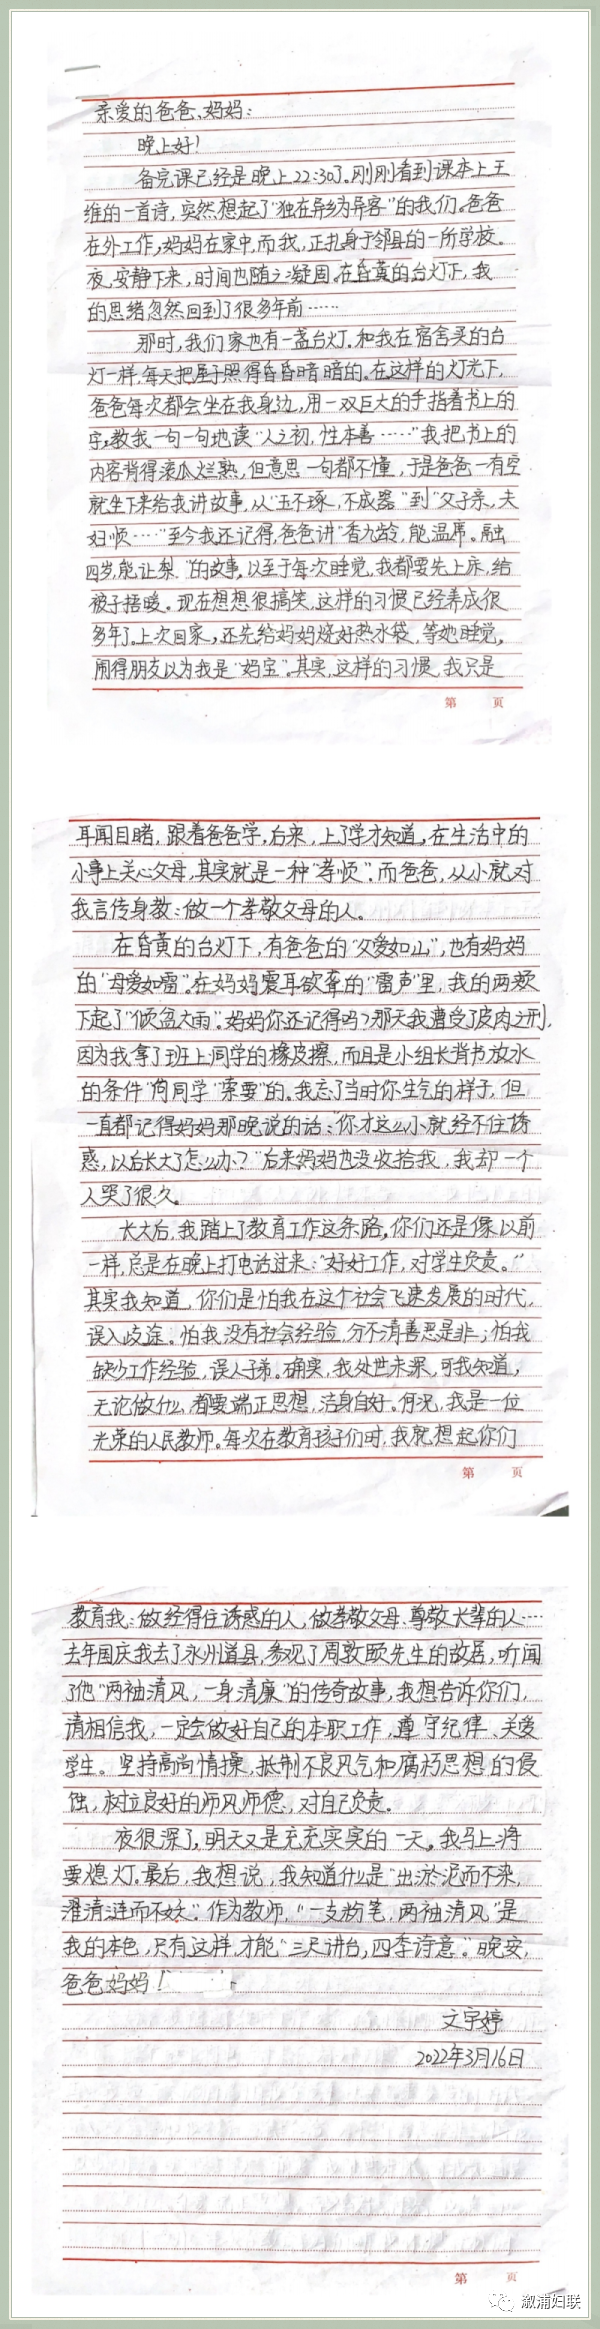 亲爱的爸爸、妈妈：
晚上好！
备完课已经是晚上22:30了。刚刚看到课本上王
维的一首诗，突然想起了“独在异乡为异客”的我们。爸爸
在外工作，妈妈在家中，而我，正扎身于邻县的一所学校。
夜，安静下来，时间也随之凝固。在昏黄的台灯下，我
的思绪忽然回到了很多年前……
那时，我们家也有一盏台灯。和我在宿舍买的台
灯一样，每天把屋子照得昏昏暗暗的。在这样的灯光下，
爸爸每次都会坐在我身边，用一双巨大的手指着书上的
字，教我一句一句地读“人之初，性本善……”我把书上的
内容背得滚瓜烂熟，但意思一句都不懂，于是爸爸一有空
就坐下来给我讲故事，从“玉不琢，不成器”到“父子亲，夫
妇顺……”至今我还记得，爸爸讲“香九龄，能温席。融
四岁，能让梨。”的故事，以至于每次睡觉，我都要先上床，给
被子捂暖。现在想想很搞笑，这样的习惯已经养成很
多年了。上次回家，还先给妈妈烧好热水袋，等她睡觉，
闹得朋友以为我是“妈宝”。其实，这样的习惯，我只是
第 页
耳闻目睹，跟着爸爸学，后来，上了学才知道，在生活中的
小事上关心父母，其实就是一种“孝顺”。而爸爸，从小就对
我言传身教：做一个孝敬父母的人。
在昏黄的台灯下，有爸爸的“父爱如山”，也有妈妈
的“母爱如雷”。在妈妈震耳欲聋的“雷声”里，我的两颊
下起了“倾盆大雨”。妈妈你还记得吗？那天我遭受了皮肉之刑，
因为我拿了班上同学的橡皮擦，而且是小组长背书放水
的条件“向同学“索要”的。我忘了当时你生气的样子，但
一直都记得妈妈那晚说的话：“你才这么小就经不住诱
惑，以后长大了怎么办？”后来妈妈也没收拾我，我却一个
人哭了很久。
长大后，我踏上了教育工作这条路，你们还是像以前
一样，总是在晚上打电话过来：“好好工作，对学生负责。”
其实我知道，你们是怕我在这个社会飞速发展的时代，
误入歧途。怕我没有社会经验，分不清善恶是非；怕我
缺少工作经验，误人子弟。确实，我处世未深，可我知道，
无论做什么，都要端正思想，洁身自好。何况，我是一位
光荣的人民教师。每次在教育孩子们时，我就想起你们
第 页
教育我：做经得住诱惑的人，做孝敬父母、尊敬长辈的人……
去年国庆我去了永州道县，参观了周敦颐先生的故居，听闻
了他“两袖清风，一身清廉”的传奇故事，我想告诉你们，
请相信我，一定会做好自己的本职工作，遵守纪律、关爱
学生。坚持高尚情操，抵制不良风气和腐朽思想的侵
蚀，树立良好的师风师德，对自己负责。
夜很深了，明天又是充充实实的一天。我马上将
要熄灯。最后，我想说，我知道什么是“出淤泥而不染，
濯清涟而不妖。”作为教师，“一支粉笔，两袖清风”是
我的本色，只有这样，才能“三尺讲台，四季诗意。”晚安，
爸爸妈妈！
文宇婷
2022年3月16日
第 页
溆浦妇联